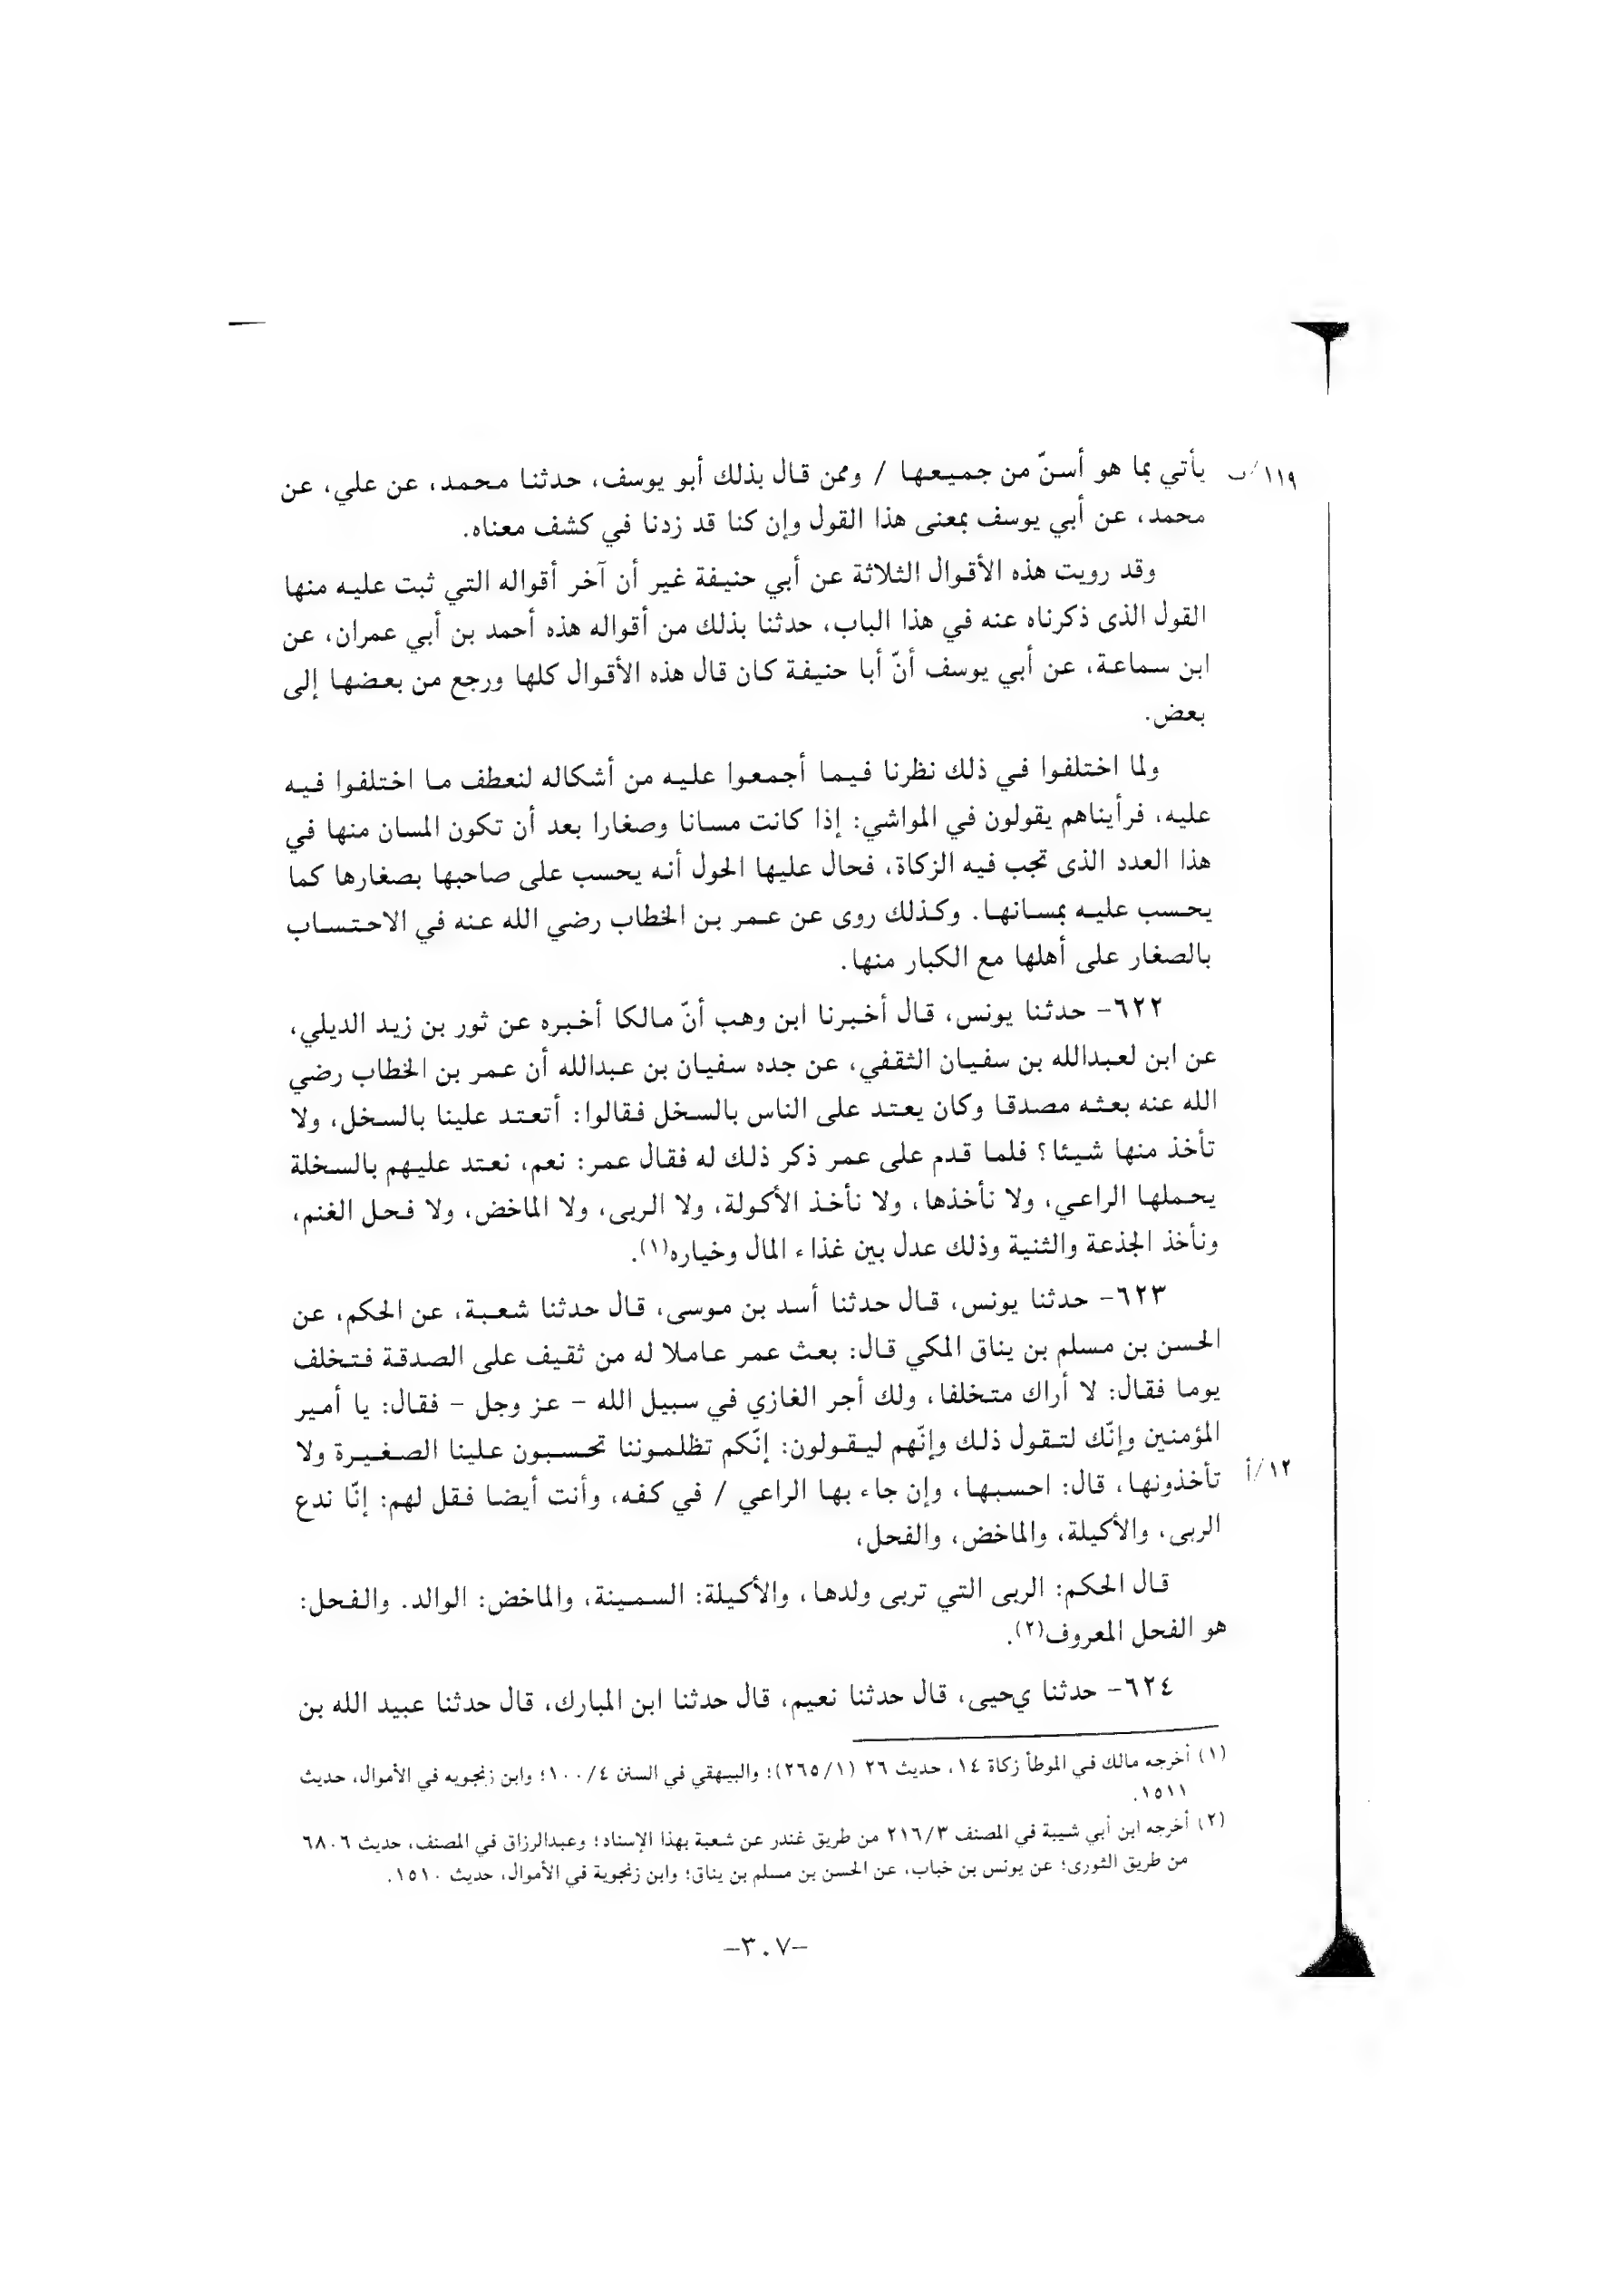 يأتي بما هو أسنّ من جميعها / وممن قال بذلك أبو يوسف، حدثنا محمد، عن علي، عن
١١٩/ب
محمد، عن أبي يوسف بمعنى هذا القول وإن كنا قد زدنا في كشف معناه.
وقد رويت هذه الأقوال الثلاثة عن أبي حنيفة غير أن آخر أقواله التي ثبت عليه منها
القول الذى ذكرناه عنه في هذا الباب، حدثنا بذلك من أقواله هذه أحمد بن أبي عمران، عن
ابن سماعة، عن أبي يوسف أنّ أبا حنيفة كان قال هذه الأقوال كلها ورجع من بعضها إلى
بعض.
ولما اختلفوا في ذلك نظرنا فيما أجمعوا عليه من أشكاله لنعطف ما اختلفوا فيه
عليه، فرأيناهم يقولون في المواشي: إذا كانت مسانا وصغارا بعد أن تكون المسان منها في
هذا العدد الذى تجب فيه الزكاة، فحال عليها الحول أنه يحسب على صاحبها بصغارها كما
يحسب عليه بمسانها. وكذلك روى عن عمر بن الخطاب رضي الله عنه في الاحتساب
بالصغار على أهلها مع الكبار منها.
٦٢٢- حدثنا يونس، قال أخبرنا ابن وهب أنّ مالكا أخبره عن ثور بن زيد الديلي،
عن ابن لعبدالله بن سفيان الثقفي، عن جده سفيان بن عبدالله أن عمر بن الخطاب رضي
الله عنه بعثه مصدقا وكان يعتد على الناس بالسخل فقالوا: أتعتد علينا بالسخل، ولا
تأخذ منها شيئا؟ فلما قدم على عمر ذكر ذلك له فقال عمر: نعم، نعتد عليهم بالسخلة
يحملها الراعي، ولا نأخذها، ولا نأخذ الأكولة، ولا الربى، ولا الماخض، ولا فحل الغنم،
ونأخذ الجذعة والثنية وذلك عدل بين غذاء المال وخياره(١).
٦٢٣- حدثنا يونس، قال حدثنا أسد بن موسى، قال حدثنا شعبة، عن الحكم، عن
الحسن بن مسلم بن يناق المكي قال: بعث عمر عاملا له من ثقيف على الصدقة فتخلف
يوما فقال: لا أراك متخلفا، ولك أجر الغازي في سبيل الله - عز وجل - فقال: يا أمير
المؤمنين وإنّك لتقول ذلك وإنّهم ليقولون: إنّكم تظلموننا تحسبون علينا الصغيرة ولا
تأخذونها، قال: احسبها، وإن جاء بها الراعي / في كفه، وأنت أيضا فقل لهم: إنّا ندع
١٢/أ
الربى، والأكيلة، والماخض، والفحل،
قال الحكم: الربى التي تربى ولدها، والأكيلة: السمينة، والماخض: الوالد. والفحل:
هو الفحل المعروف(٢).
٦٢٤- حدثنا يحيى، قال حدثنا نعيم، قال حدثنا ابن المبارك، قال حدثنا عبيد الله بن
(١) أخرجه مالك في الموطأ زكاة ١٤، حديث ٢٦ (٢٦٥/١)؛ والبيهقي في السنن ١٠٠/٤؛ وابن زنجويه في الأموال، حديث
١٥١١.
(٢) أخرجه ابن أبي شيبة في المصنف ٢١٦/٣ من طريق غندر عن شعبة بهذا الإسناد؛ وعبدالرزاق في المصنف، حديث ٦٨٠٦
من طريق الثورى؛ عن يونس بن خباب، عن الحسن بن مسلم بن يناق؛ وابن زنجوية في الأموال، حديث ١٥١٠.
-٣٠٧-